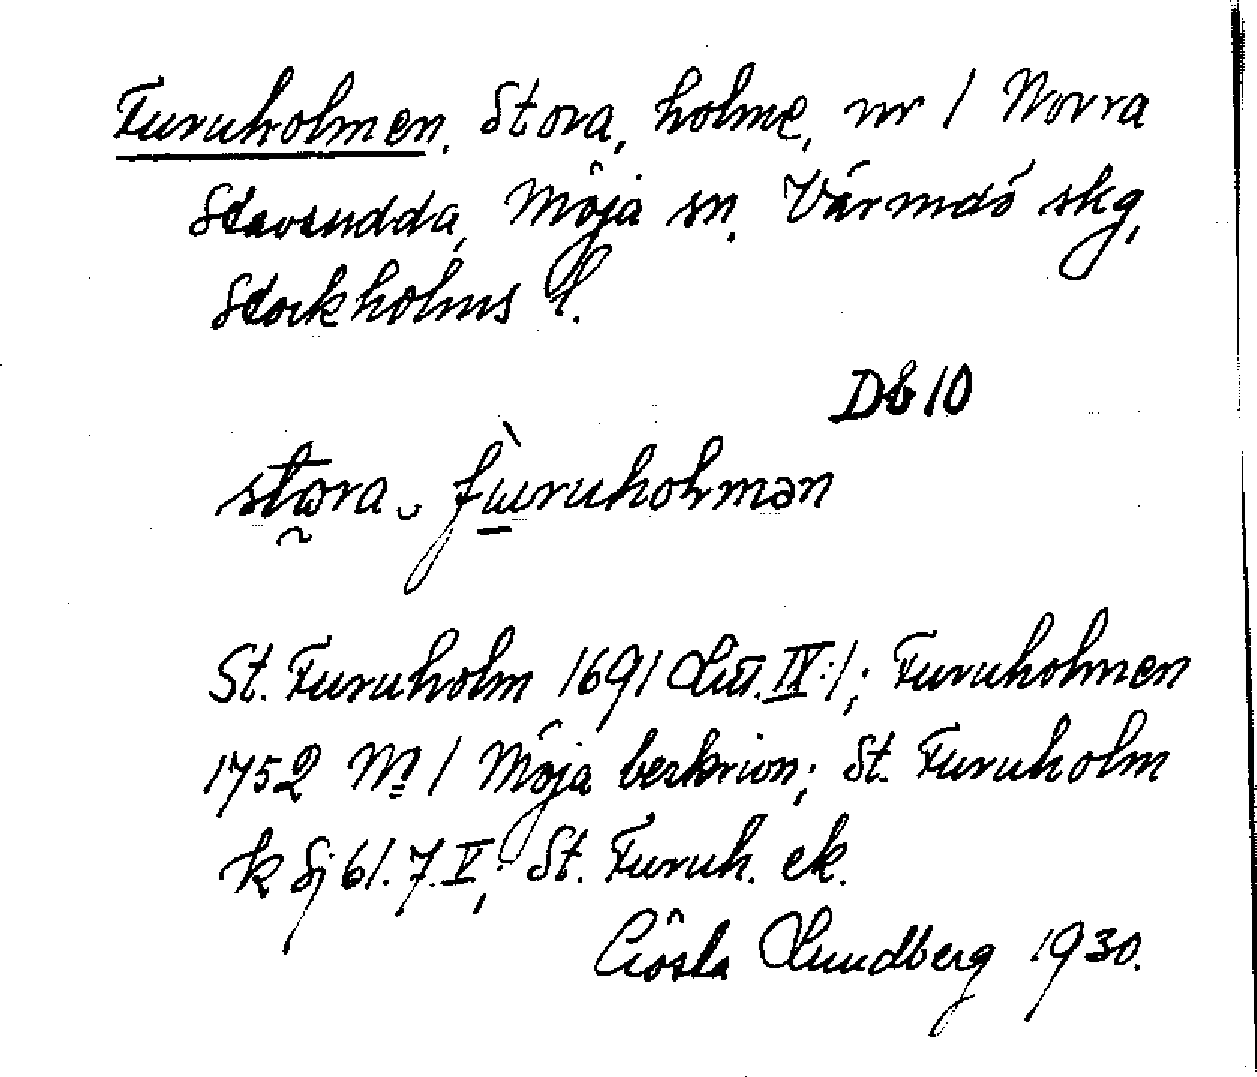 Furuholmen, Stora, holme, nr 1 Norra
Stavsudda, Möja sn. Värmdö skg,
Stockholms l.
Db 10
stora furuholmən
St. Furuholm 1691 Litt. IV:1; Furuholmen
1752 № 1 Möja beskrivn; St. Furuholm
k Sj 61. 7. V; St. Furuh. ek.
Gösta Lundberg 1930.